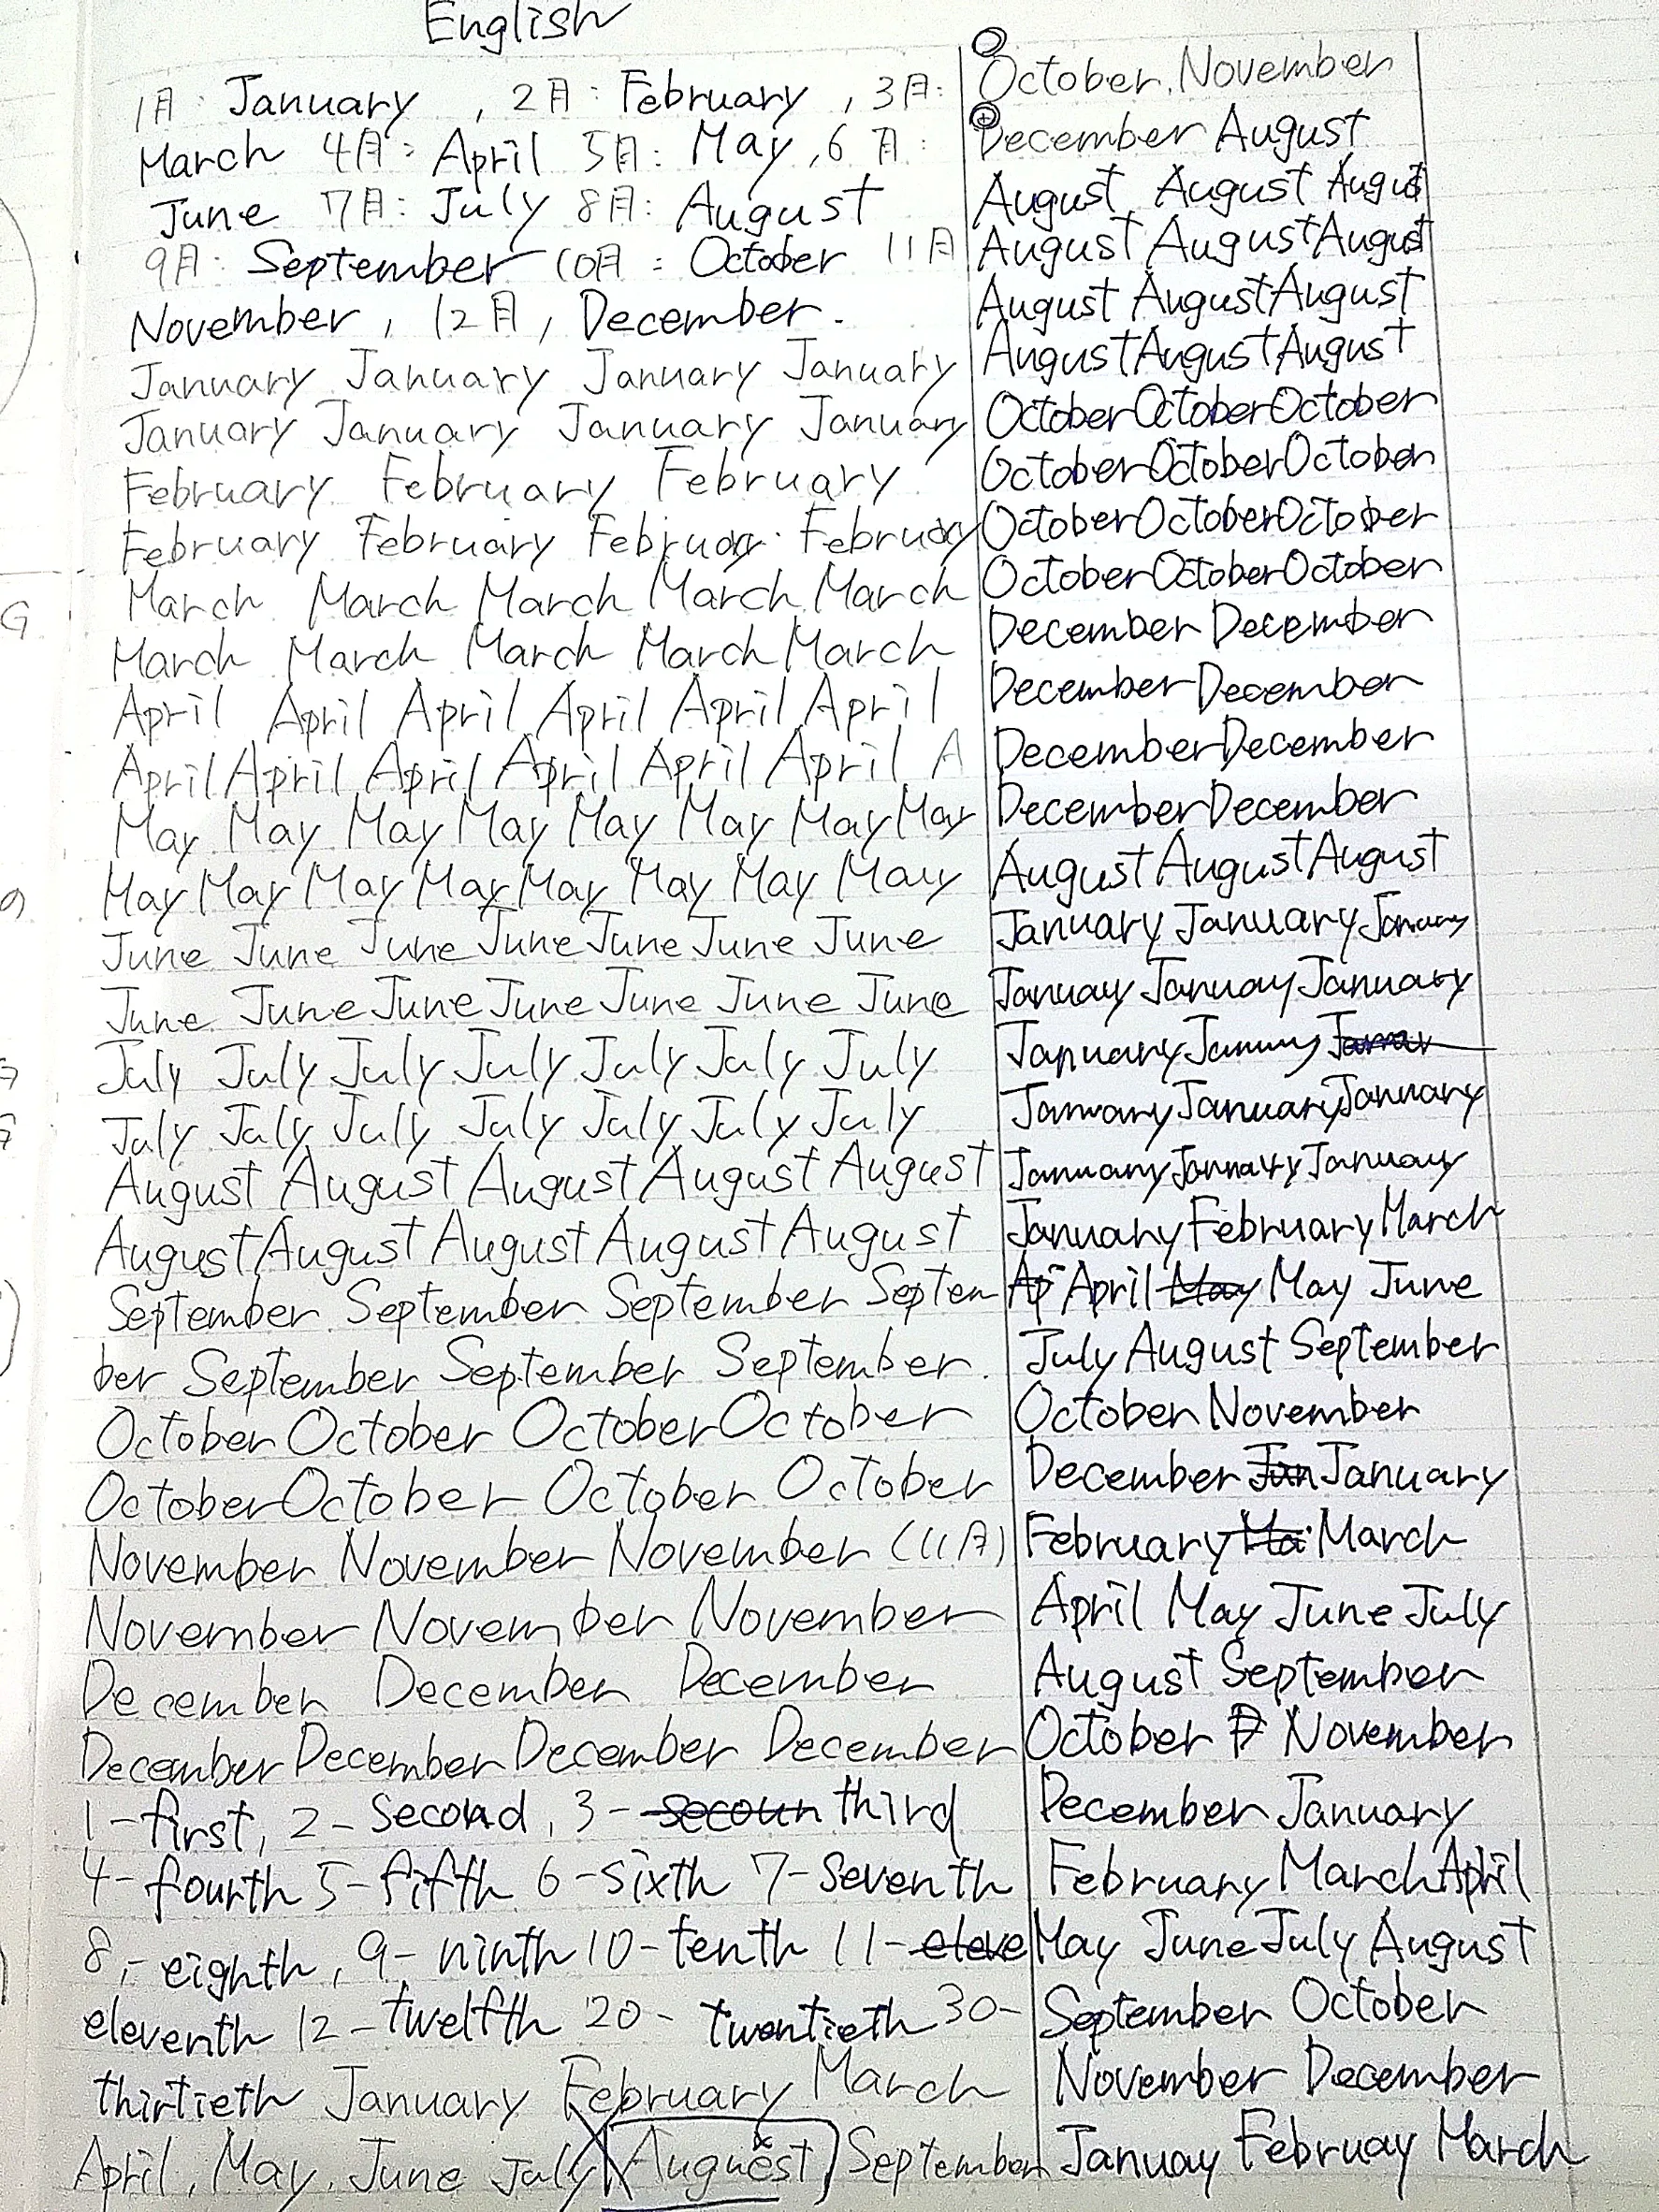 English
1月: January , 2月: February , 3月:
March 4月: April 5月: May , 6月:
June 7月: July 8月: August
9月: September 10月: October 11月
November , 12月 , December .
January January January January
January January January January
February February February
February February February February
March March March March March
March March March March March
April April April April April April
April April April April April April A
May May May May May May May May
May May May May May May May May
June June June June June June June
June June June June June June June
July July July July July July July
July July July July July July July
August August August August August
August August August August August
September September September Septem
ber September September September.
October October October October
October October October October
November November November (11月)
November November November
December December December
December December December December
1-first, 2-second, 3-secoun third
4-fourth 5-fifth 6-sixth 7-seventh
8,-eighth, 9-ninth 10-tenth 11-eleve
eleventh 12-twelfth 20-twentieth 30-
thirtieth January February March
April, May, June July Auguest September
October, November
December August
August August August
August August August
August August August
August August August
October October October
October October October
October October October
October October October
December December
December December
December December
December December
August August August
January January January
Januay Januay January
January
January January January
January January January
January February March
Ap April May May June
July August September
October November
December Jan January
February Ma March
April May June July
August September
October November
December January
February March April
May June July August
September October
November December
Januay Februay March